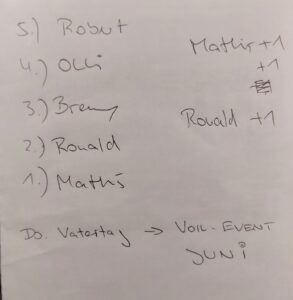 5.) Robert
4.) Olli
3.) Bremy
2.) Ronald
1.) Mathis
Mathis +1
+1
Ronald +1
Do. Vatertag → VOLL-EVENT
JUNI